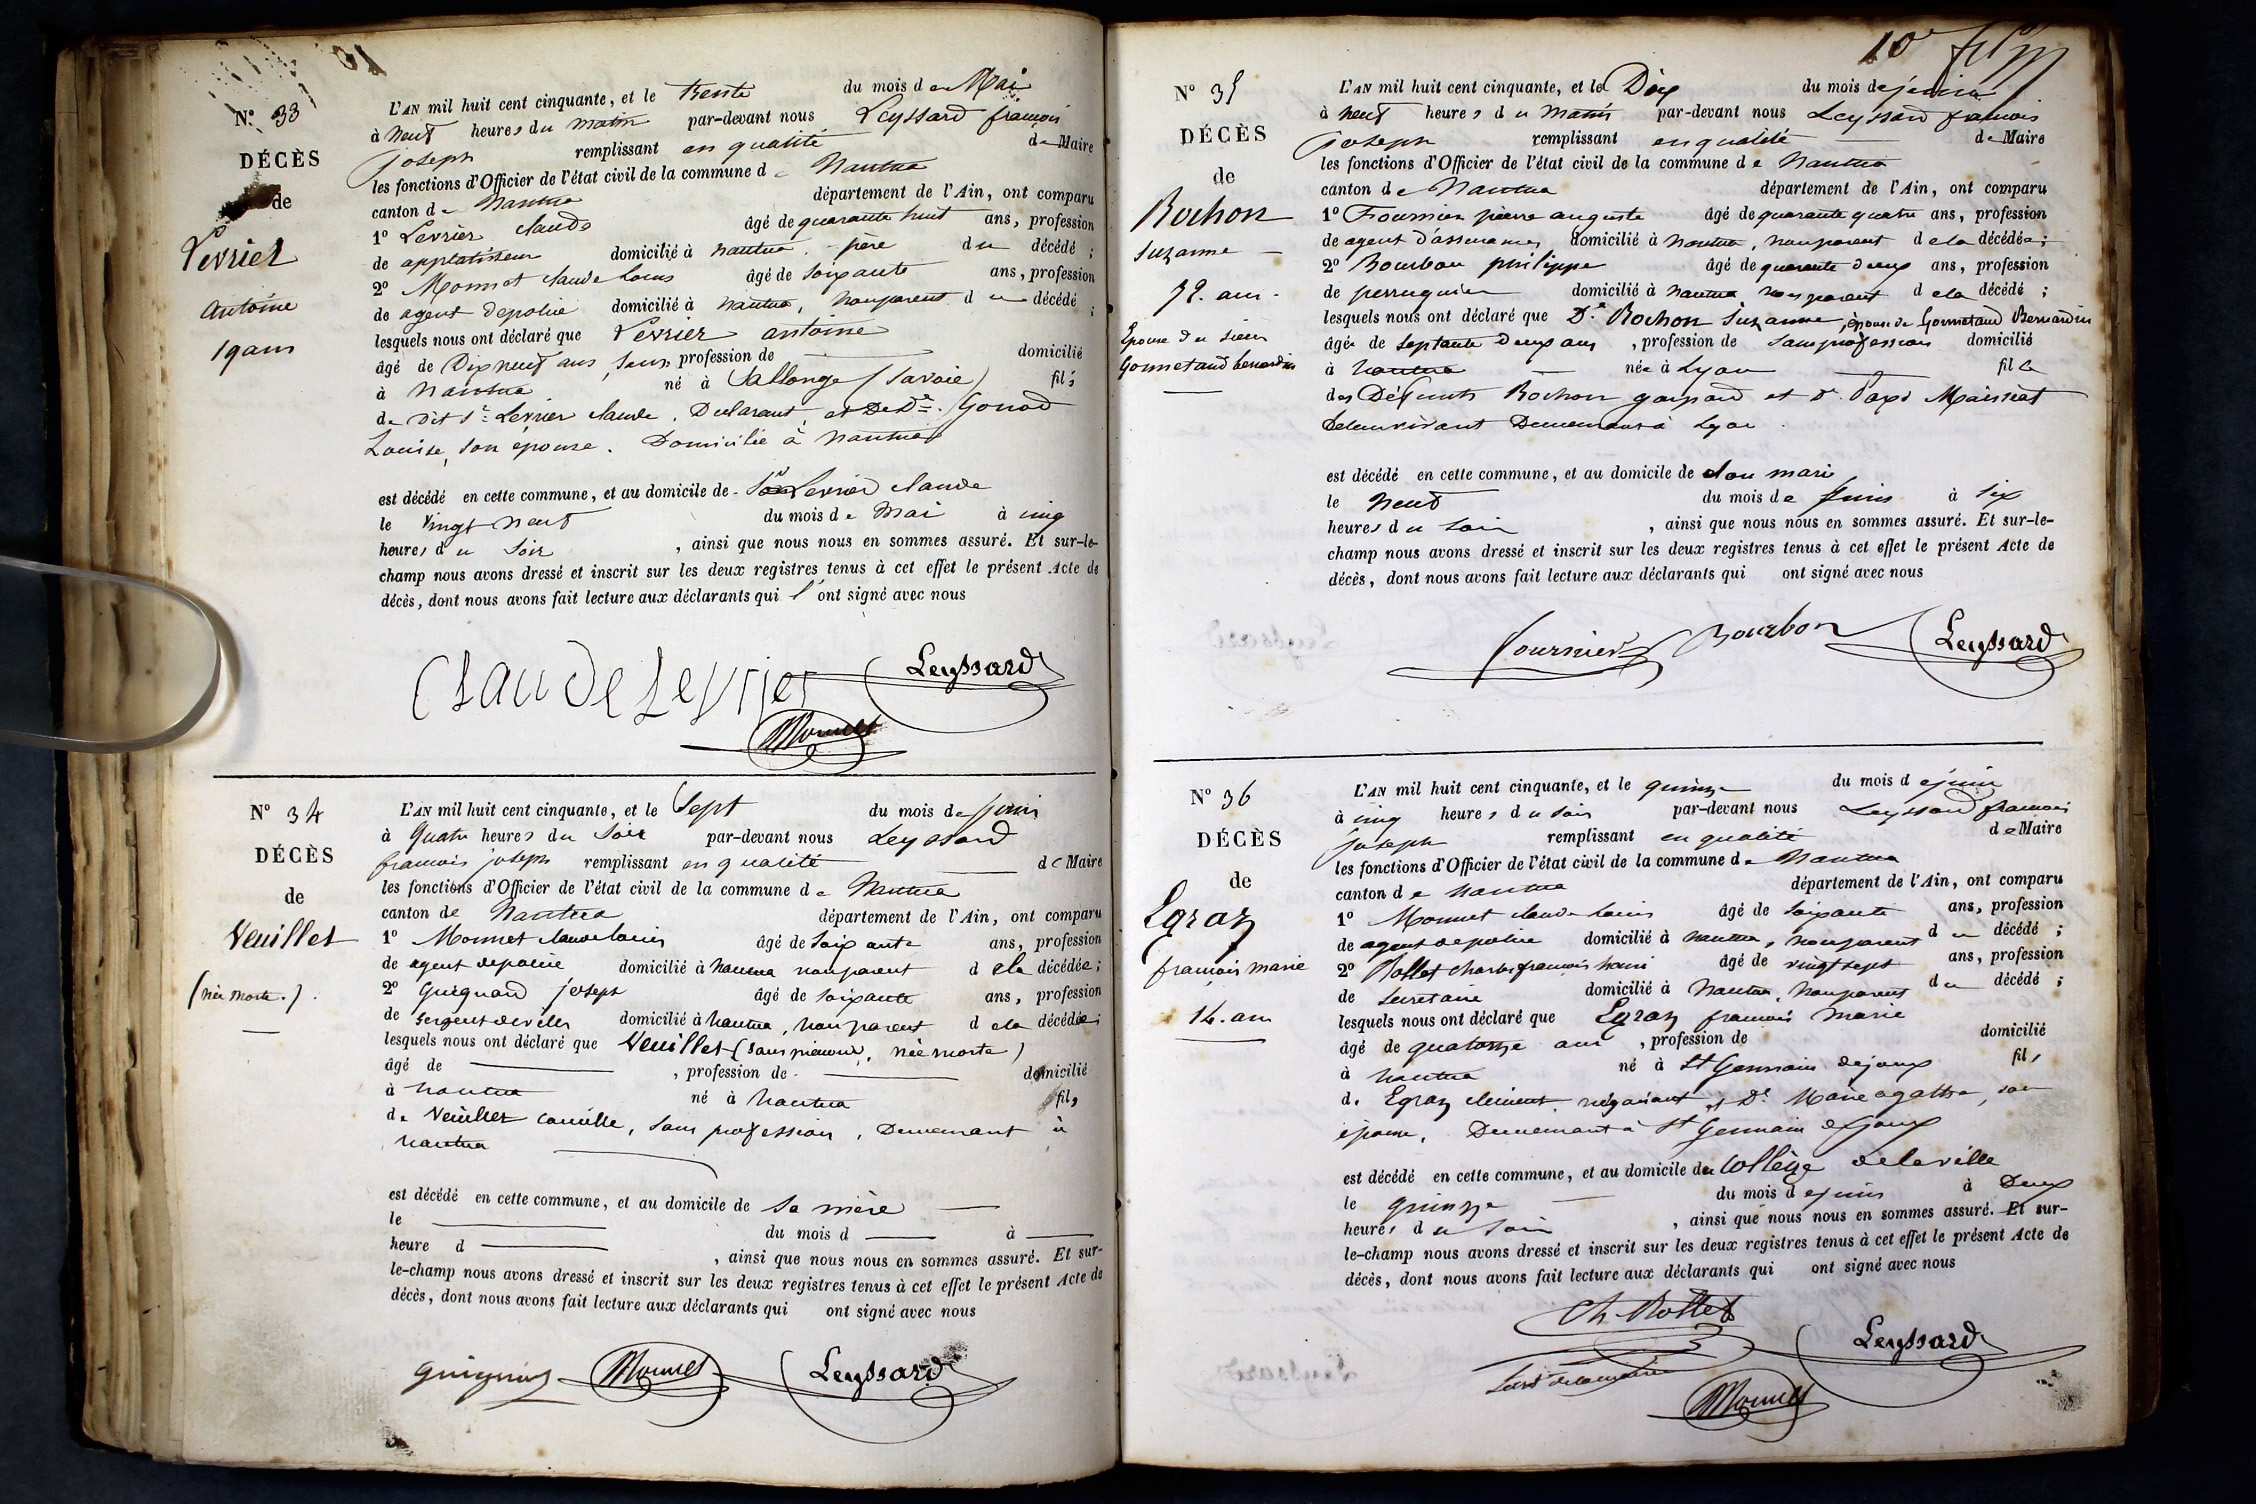 N.° 33
DÉCÈS
de
Levrier
antoine
19 ans
L'AN mil huit cent cinquante, et le trente du mois de Mai
à neuf heures du matin par-devant nous Leyssard françois
joseph remplissant en qualité de Maire
les fonctions d'Officier de l'état civil de la commune de Nantua
canton de Nantua département de l'Ain, ont comparu
1° Levrier claude âgé de quarante huit ans, profession
de domicilié à nantua, père du décédé ;
2° Monnet claude Louis âgé de soixante ans, profession
de agent de police domicilié à nantua, non parent du décédé ;
lesquels nous ont déclaré que Levrier antoine
âgé de Dix neuf ans, sans profession de domicilié
à nantua né à Sallonge (Savoie) fils
de dit Sr. Levrier claude, Déclarant, et de De. Gonod
Louise, son épouse. Domicilié à nantua
est décédé en cette commune, et au domicile de Levrier claude
le vingt neuf du mois de Mai à cinq
heures du soir, ainsi que nous nous en sommes assuré. Et sur-le-
champ nous avons dressé et inscrit sur les deux registres tenus à cet effet le présent Acte de
décès, dont nous avons fait lecture aux déclarants qui l'ont signé avec nous
Claude Levrier Leyssard
Monnet
N° 34
DÉCÈS
de
Veuillet
(née morte.)
L'AN mil huit cent cinquante, et le Sept du mois de juin
à Quatre heures du Soir par-devant nous Leyssard
françois joseph remplissant en qualité de Maire
les fonctions d'Officier de l'état civil de la commune de Nantua
canton de Nantua département de l'Ain, ont comparu
1° Monnet claude louis âgé de soixante ans, profession
de agent de police domicilié à nantua non parent de la décédée ;
2° Guignard joseph âgé de soixante ans, profession
de sergent de ville domicilié à nantua, non parent de la décédée ;
lesquels nous ont déclaré que Veuillet (sans prénom, née morte)
âgé de , profession de domicilié
à nantua né à nantua fil
de Veuillet camille, sans profession, Demeurant à
nantua
est décédé en cette commune, et au domicile de sa mère
le du mois d à
heure d , ainsi que nous nous en sommes assuré. Et sur-
le-champ nous avons dressé et inscrit sur les deux registres tenus à cet effet le présent Acte de
décès, dont nous avons fait lecture aux déclarants qui ont signé avec nous
Monnet Leyssard
10e
N° 35
DÉCÈS
de
Rochon
suzanne
72 ans
Epouse du sieur
Gonnetaud bernardin
L'AN mil huit cent cinquante, et le Dix du mois de juin
à neuf heures du matin par-devant nous Leyssard françois
joseph remplissant en qualité de Maire
les fonctions d'Officier de l'état civil de la commune de nantua
canton de Nantua département de l'Ain, ont comparu
1° Fournier pierre auguste âgé de quarante quatre ans, profession
de agent d'assurances domicilié à nantua, non parent de la décédée ;
2° Bourbon philippe âgé de quarante deux ans, profession
de perruquier domicilié à nantua non parent de la décédé ;
lesquels nous ont déclaré que De. Rochon Suzanne, épouse de Gonnetaud Bernardin
âgée de septante deux ans, profession de sans profession domicilié
à nantua née à Lyon fille
des Défunts Rochon gaspard et De.
De leur vivant Demeurant à Lyon
est décédé en cette commune, et au domicile de son mari
le neuf du mois de juin à six
heures du soir, ainsi que nous nous en sommes assuré. Et sur-le-
champ nous avons dressé et inscrit sur les deux registres tenus à cet effet le présent Acte de
décès, dont nous avons fait lecture aux déclarants qui ont signé avec nous
Fournier Bourbon Leyssard
N° 36
DÉCÈS
de
Egraz
françois marie
14 ans
L'AN mil huit cent cinquante, et le quinze du mois de juin
à cinq heures du soir par-devant nous Leyssard françois
joseph remplissant en qualité de Maire
les fonctions d'Officier de l'état civil de la commune de Nantua
canton de nantua département de l'Ain, ont comparu
1° Monnet claude Louis âgé de soixante ans, profession
de agent de police domicilié à nantua, non parent du décédé ;
2° Rollet charles françois âgé de vingt sept ans, profession
de secretaire domicilié à Nantua, non parent du décédé ;
lesquels nous ont déclaré que Egraz françois marie
âgé de quatorze ans, profession de domicilié
à nantua né à St Germain de joux fils
de Egraz clément négociant et De. Marie agathe, son
épouse, Demeurant à St Germain de joux
est décédé en cette commune, et au domicile du Collège de la ville
le quinze du mois de juin à Deux
heures du soir, ainsi que nous nous en sommes assuré. Et sur-
le-champ nous avons dressé et inscrit sur les deux registres tenus à cet effet le présent Acte de
décès, dont nous avons fait lecture aux déclarants qui ont signé avec nous
Ch. Rollet
Leyssard
Monnet